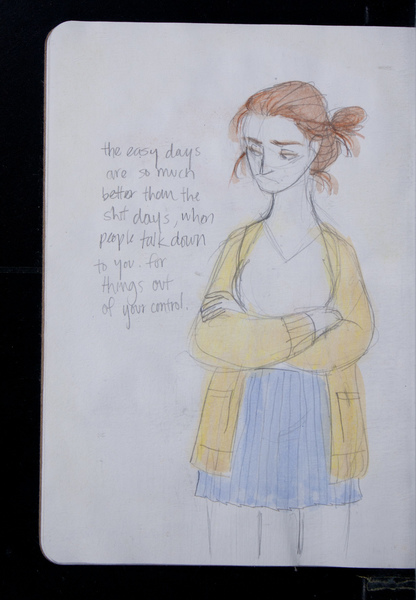 the easy days
are so much
better than the
shit days, when
people talk down
to you. for
things out
of your control.